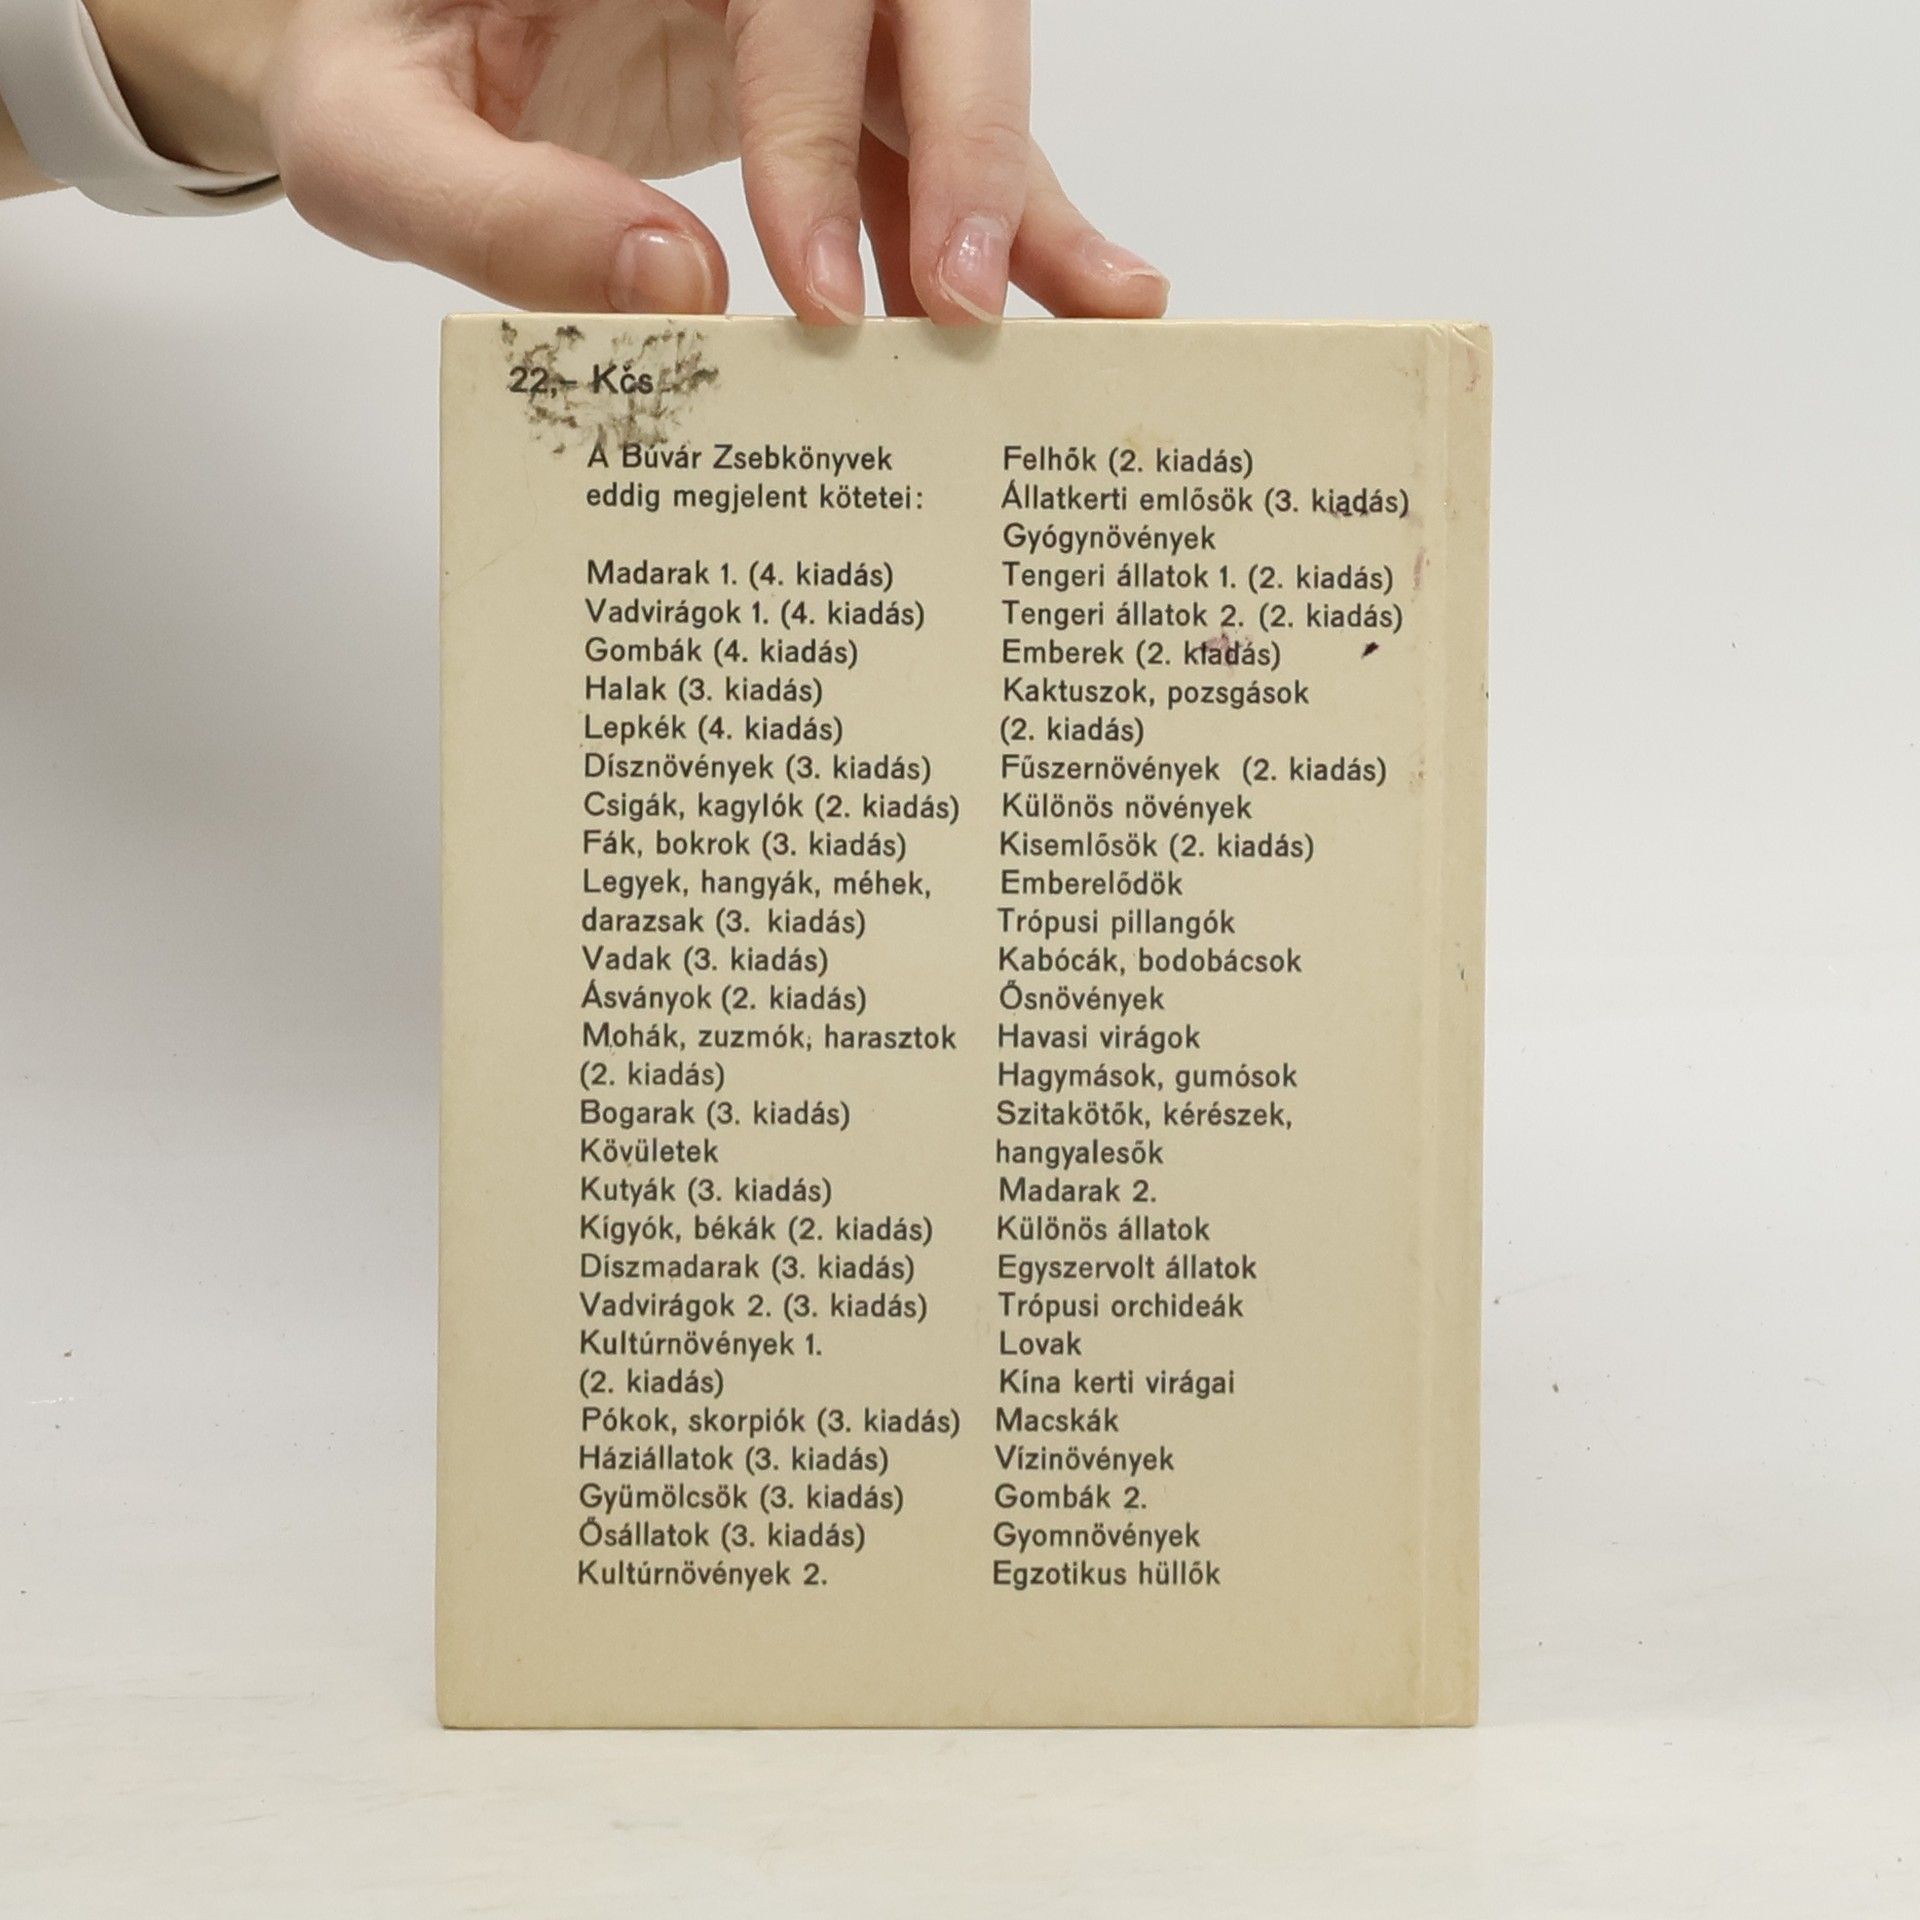 22,– Kčs
A Búvár Zsebkönyvek
eddig megjelent kötetei:
Madarak 1. (4. kiadás)
Vadvirágok 1. (4. kiadás)
Gombák (4. kiadás)
Halak (3. kiadás)
Lepkék (4. kiadás)
Dísznövények (3. kiadás)
Csigák, kagylók (2. kiadás)
Fák, bokrok (3. kiadás)
Legyek, hangyák, méhek,
darazsak (3. kiadás)
Vadak (3. kiadás)
Ásványok (2. kiadás)
Mohák, zuzmók, harasztok
(2. kiadás)
Bogarak (3. kiadás)
Kövületek
Kutyák (3. kiadás)
Kígyók, békák (2. kiadás)
Díszmadarak (3. kiadás)
Vadvirágok 2. (3. kiadás)
Kultúrnövények 1.
(2. kiadás)
Pókok, skorpiók (3. kiadás)
Háziállatok (3. kiadás)
Gyümölcsök (3. kiadás)
Ősállatok (3. kiadás)
Kultúrnövények 2.
Felhők (2. kiadás)
Állatkerti emlősök (3. kiadás)
Gyógynövények
Tengeri állatok 1. (2. kiadás)
Tengeri állatok 2. (2. kiadás)
Emberek (2. kiadás)
Kaktuszok, pozsgások
(2. kiadás)
Fűszernövények (2. kiadás)
Különös növények
Kisemlősök (2. kiadás)
Emberelődök
Trópusi pillangók
Kabócák, bodobácsok
Ősnövények
Havasi virágok
Hagymások, gumósok
Szitakötők, kérészek,
hangyalesők
Madarak 2.
Különös állatok
Egyszervolt állatok
Trópusi orchideák
Lovak
Kína kerti virágai
Macskák
Vízinövények
Gombák 2.
Gyomnövények
Egzotikus hüllők